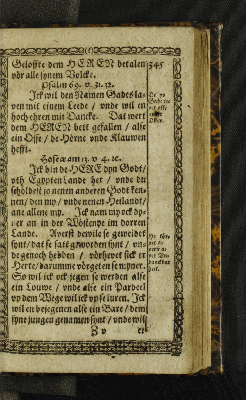 Geloffte dem HEREN betalen
vör alle synem Volcke.
Psalm 69. v. 31. 32.
Jck wil den Namen Gades la-
ven mit einem Leede / vnde wil en
hoch ehren mit Dancke. Dat wert
dem HEREN bett gefallen / alse
ein Osse / de Hörne vnde Klauwen
hefft.
Hoseae am 13. v. 4. &c.
Jck bin de HERE dyn Godt /
vth Egypten Lande her / vnde du
schöldest jo nenen anderen Godt ken-
nen / den my / vnde nenen Heilandt /
ane allene my. Jck nam my eck dy-
ner an in der Wöstenye im dorren
Lande. Averst dewile se geweidet
synt / dat se satt geworden synt / vnde
de genoch hebben / vörhevet sick er
Herte / darumme vörgeten se myner.
So wil ick ock jegen se werden alse
ein Louwe / vnde alse ein Pardeel
vp dem Wege wil ick vp se luren. Jck
wil en bejegenen alse ein Bare / dem
syne jungen genamen synt / vnde wil
345